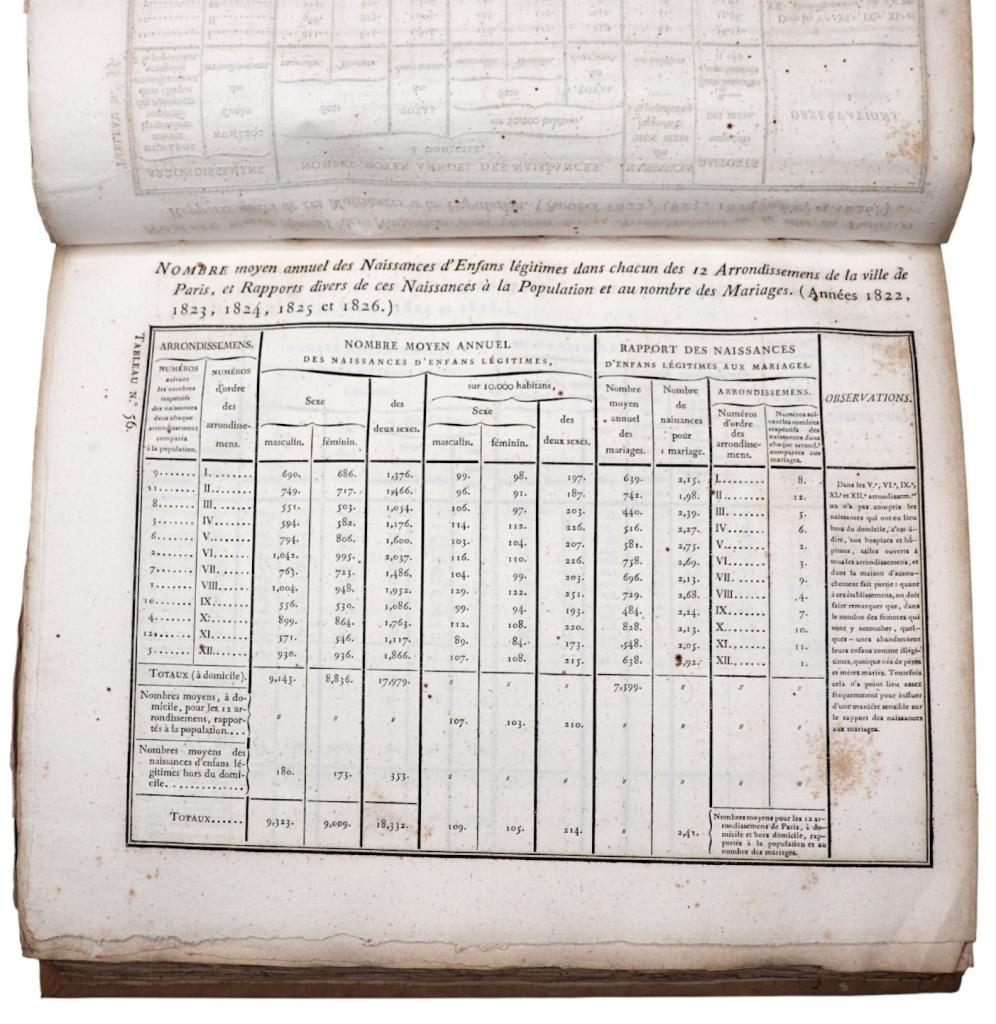 NOMBRE moyen annuel des Naissances d'Enfans légitimes dans chacun des 12 Arrondissemens de la ville de
Paris, et Rapports divers de ces Naissances à la Population et au nombre des Mariages. (Années 1822,
1823, 1824, 1825 et 1826.)
TABLEAU N.° 56.
ARRONDISSEMENS.
NUMÉROS
suivant
les nombres
respectifs
des naissances
dans chaque
arrondissement
comparés
à la population.
NUMÉROS
d'ordre
des
arrondisse-
mens.
NOMBRE MOYEN ANNUEL
DES NAISSANCES D'ENFANS LÉGITIMES,
Sexe
masculin. féminin.
des
deux sexes.
sur 10.000 habitans,
Sexe
masculin. féminin.
des
deux sexes.
RAPPORT DES NAISSANCES
D'ENFANS LÉGITIMES AUX MARIAGES.
Nombre
moyen
annuel
des
mariages.
Nombre
de
naissances
pour
1 mariage.
ARRONDISSEMENS.
Numéros
d'ordre
des
arrondisse-
mens.
Numéros sui-
vant les nombres
respectifs des
naissances dans
chaque arrond.t
comparées aux
mariages.
OBSERVATIONS.
9....... I....... 690. 686. 1,376. 99. 98. 197. 639. 2,15. I....... 8.
11....... II....... 749. 717. 1,466. 96. 91. 187. 742. 1,98. II....... 12.
8....... III....... 551. 503. 1,054. 106. 97. 203. 440. 2,39. III....... 5.
3....... IV....... 594. 582. 1,176. 114. 112. 226. 516. 2,27. IV....... 6.
6....... V....... 794. 806. 1,600. 103. 104. 207. 581. 2,75. V....... 2.
2....... VI....... 1,042. 995. 2,037. 116. 110. 226. 758. 2,69. VI....... 3.
7....... VII....... 763. 723. 1,486. 104. 99. 203. 696. 2,13. VII....... 9.
1....... VIII....... 1,004. 948. 1,952. 129. 122. 251. 729. 2,68. VIII....... 4.
10....... IX....... 556. 530. 1,086. 99. 94. 193. 484. 2,24. IX....... 7.
4....... X....... 899. 864. 1,763. 112. 108. 220. 828. 2,13. X....... 10.
12....... XI....... 571. 546. 1,117. 89. 84. 173. 548. 2,05. XI....... 11.
5....... XII....... 930. 936. 1,866. 107. 108. 215. 638. 2,92. XII....... 1.
TOTAUX (à domicile). 9,143. 8,836. 17,979. " " " 7,599. " " "
Nombres moyens, à do-
micile, pour les 12 ar-
rondissemens, rappor-
tés à la population.... " " " 107. 103. 210. " " " "
Nombres moyens des
naissances d'enfans lé-
gitimes hors du domi-
cile............. 180. 173. 353. " " " " " " "
TOTAUX...... 9,323. 9,009. 18,332. 109. 105. 214. " 2,41.
Nombres moyens pour les 12 ar-
rondissemens de Paris, à do-
micile et hors domicile, rap-
portés à la population et au
nombre des mariages.
Dans les V.e, VI.e, IX.e,
XI.e et XII.e arrondissem.ens
on n'a pas compris les
naissances qui ont eu lieu
hors du domicile, c'est-à-
dire, aux hospices et hô-
pitaux, salles ouverts à
tous les arrondissemens, et
dont la maison d'accou-
chement fait partie : quant
à ces établissemens, on doit
faire remarquer que, dans
le nombre des femmes qui
vont y accoucher, quel-
ques-unes abandonnent
leurs enfans comme illégi-
times, quoique nés de pères
et mères mariés. Toutefois
cela n'a point lieu assez
fréquemment pour influer
d'une manière sensible sur
le rapport des naissances
aux mariages.